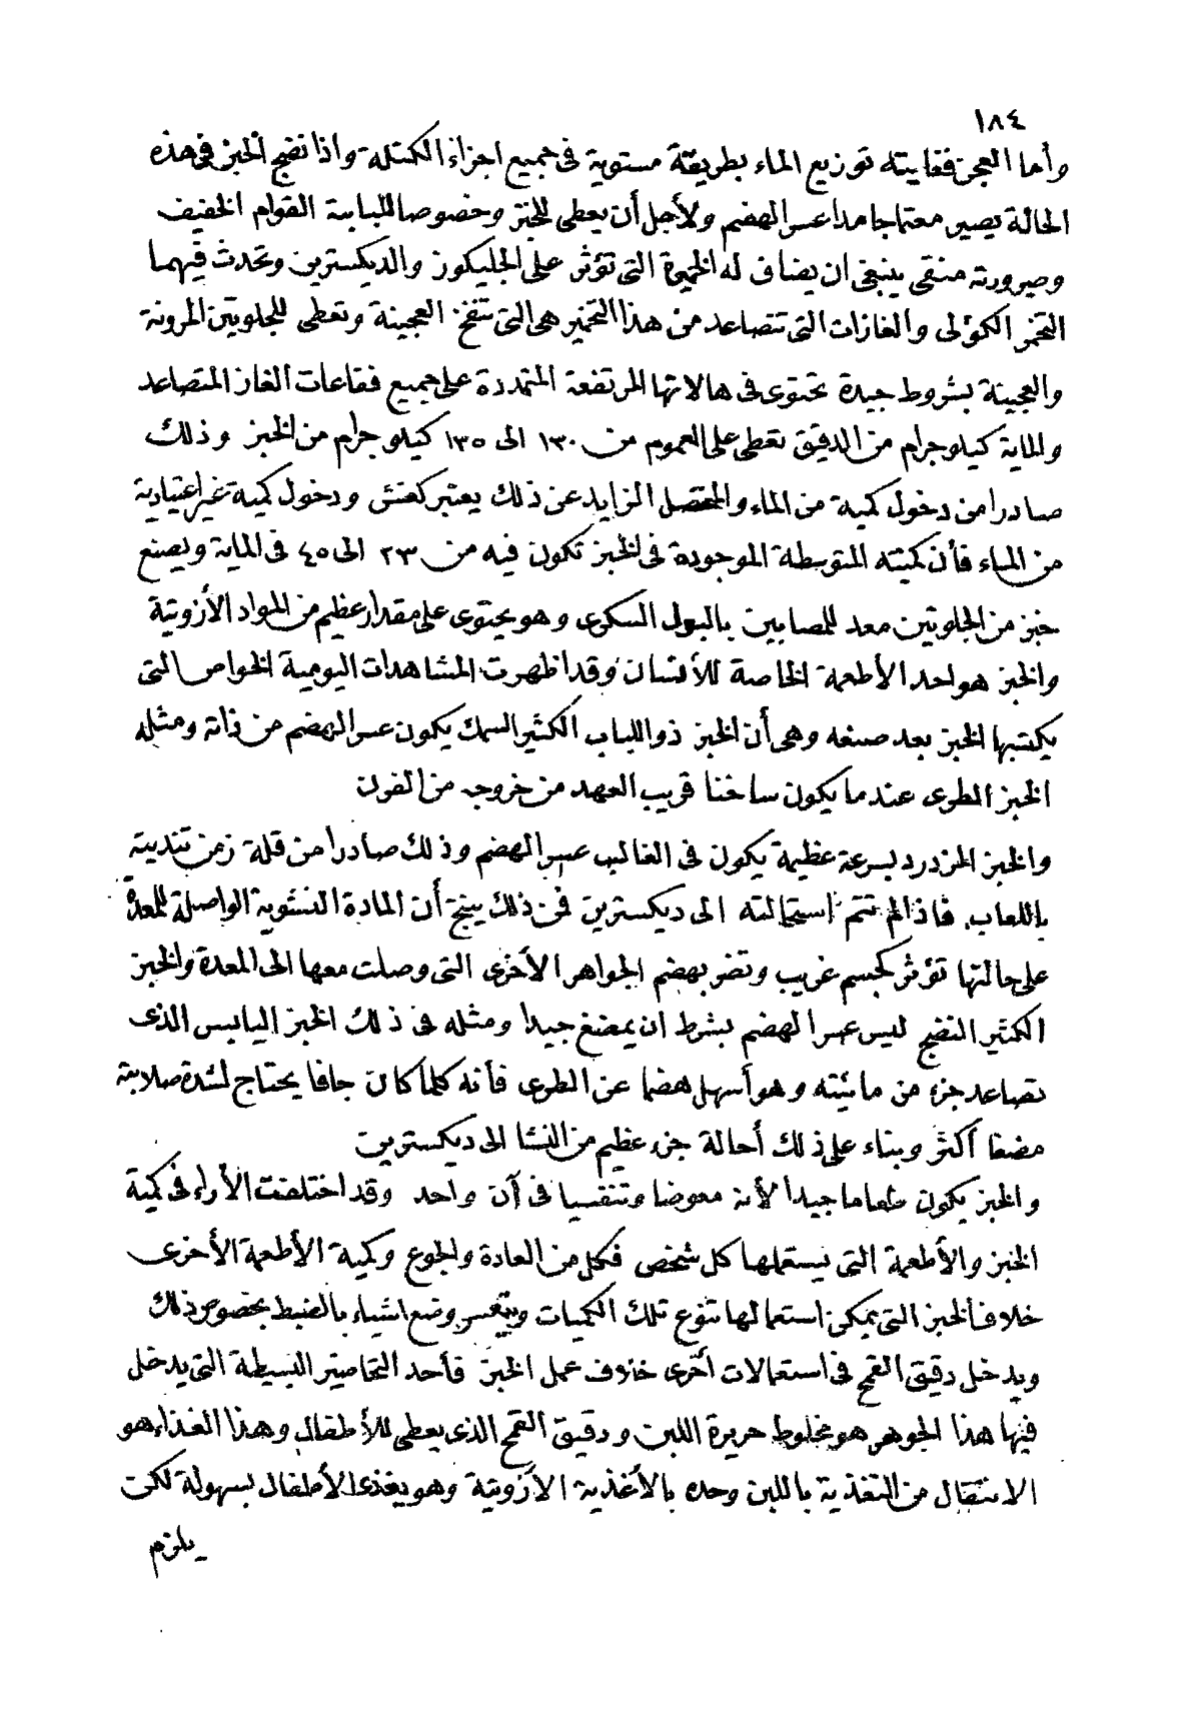 ١٨٤
وأما العجن فغايته توزيع الماء بطريقة مستوية فى جميع اجزاء الكتلة واذا نضج الخبز فى هذه
الحالة يصير معتما جامدا عسر الهضم ولأجل أن يعطى للخبز وخصوصا للبابية القوام الخفيف
وصيرورته منقى ينبغى ان يضاف له الخميرة التى تؤثر على الجليكوز والديكسترين وتحدث فيهما
التخمر الكؤلى والغازات التى تتصاعد من هذا التخمير هى التى تنفخ العجينة وتعطى للجلوتين المرونة
والعجينة بشروط جيدة تحتوى فى هالاتها المرتفعة المتمددة على جميع فقاعات الغاز المتصاعد
والماية كيلو جرام من الدقيق تعطى على العموم من ١٣٠ الى ١٣٥ كيلو جرام من الخبز وذلك
صادرا من دخول كمية من الماء والمتحصل الزايد عن ذلك يعتبر كغش ودخول كمية غير اعتيادية
من الماء فأن كميته المتوسطة الموجودة فى الخبز تكون فيه من ٢٣ الى ٤٥ فى الماية ويصنع
خبز من الجلوتين معد للمصابين بالبول السكرى وهو يحتوى على مقدار عظيم من المواد الأزوتية
والخبز هو احد الأطعمة الخاصة للأنسان وقد اظهرت المشاهدات اليومية الخواص التى
يكتسبها الخبز بعد صنعه وهى أن الخبز ذو اللباب الكثير السمك يكون عسر الهضم من ذاته ومثله
الخبز الطرى عندما يكون ساخنا قريب العهد من خروجه من الفرن
والخبز المزدرد بسرعة عظيمة يكون فى الغالب عسر الهضم وذلك صادرا من قلة زمن تنديته
باللعاب. فاذا لم تتم استحالته الى ديكسترين فمن ذلك ينتج أن المادة النشوية الواصلة للمعدة
على حالتها تؤثر كجسم غريب وتضر بهضم الجواهر الأخرى التى وصلت معها الى المعدة والخبز
الكثير النضج ليس عسر الهضم بشرط ان يمضغ جيدا ومثله فى ذلك الخبز اليابس الذى
تصاعد جزء من مائيته وهو أسهل هضما عن الطرى فأنه كلما كان جافا يحتاج لشدة صلابته
مضغا أكثر وبناء على ذلك أحالة جزء عظيم من النشا الى ديكسترين
والخبز يكون طعاما جيدا لأنه معوضا وتنفسيا فى آن واحد وقد اختلفت الأراء فى كمية
الخبز والأطعمة التى يستعملها كل شخص فكل من العادة والجوع وكمية الأطعمة الأخرى
خلاف الخبز التى يمكن استعمالها تنوع تلك الكميات ويتعسر وضع اشياء بالضبط بخصوص ذلك
ويدخل دقيق القمح فى استعمالات أخرى خلاف عمل الخبز فأحد التحاضير البسيطة التى يدخل
فيها هذا الجوهر هو مخلوط حريرة اللبن ودقيق القمح الذى يعطى للأطفال وهذا الغذاء هو
الانتقال من التغذية باللبن وحده بالأغذية الأزوتية وهو يغذى الأطفال بسهولة لكن
يلزم